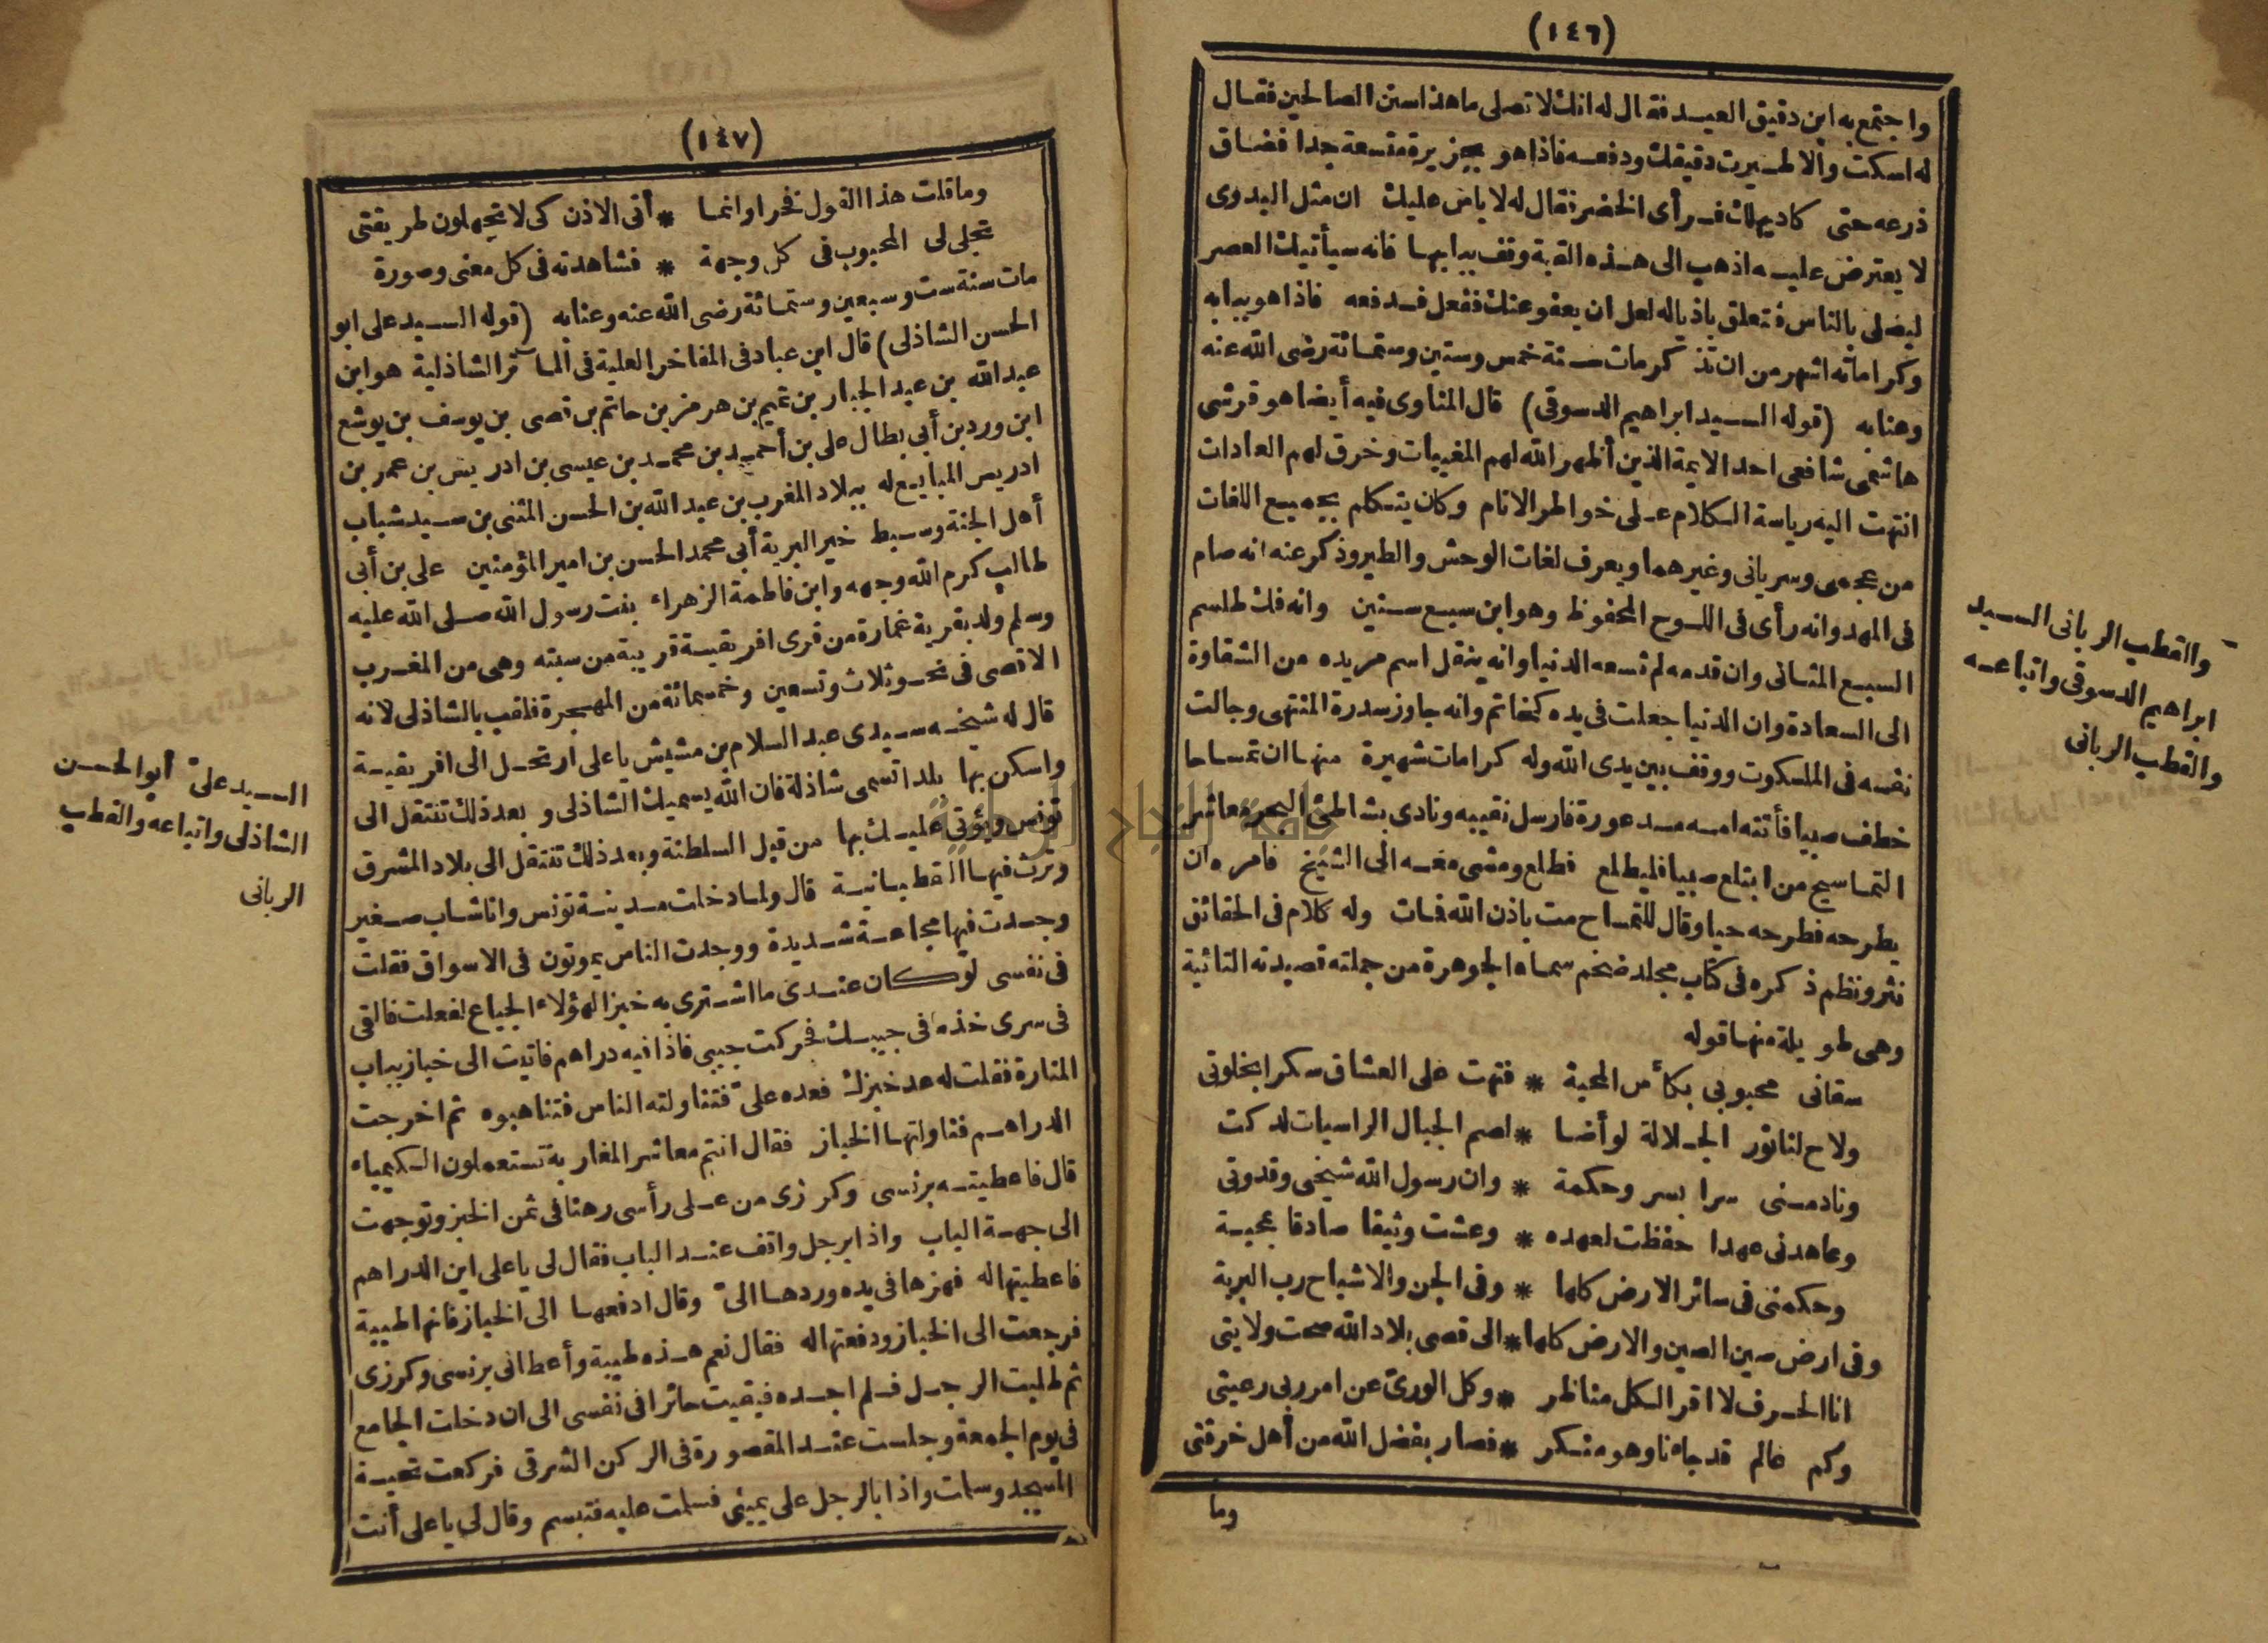 (١٤٦)
واجتمع به ابن دقيق العيد فقال له انك لا تصلى ما هذا سنن الصالحين فقال
له اسكت والا طيرت دقيقك ودفعه فاذا هو بجزيرة متسعة جدا فضاق
ذرعه حتى كاد يهلك فرأى الخضر فقال له لا باس عليك ان مثل البدوى
لا يعترض عليه اذهب الى هذه القبة وقف ببابها فانه سيأتيك العصر
ليصلى بالناس فتعلق باذياله لعل ان يعفو عنك ففعل فدفعه فاذا هو ببابه
وكراماته اشهر من ان تذكر مات سنة خمس وستين وستمائة رضى الله عنه
وعنا به (قوله السيد ابراهيم الدسوقى) قال المناوى فيه أيضا هو قرشى
هاشمى شافعى احد الايمة الذين أظهر الله لهم المغيبات وخرق لهم العادات
انتهت اليه رياسة الكلام على خواطر الانام وكان يتكلم بجميع اللغات
من عجمى وسريانى وغيرهما ويعرف لغات الوحش والطير وذكر عنه انه صام
فى المهد وانه رأى فى اللوح المحفوظ وهو ابن سبع سنين وانه فك طلسم
السبع المثانى وان قدمه لم تسعه الدنيا وانه ينقل اسم مريده من الشقاوة
الى السعادة وان الدنيا جعلت فى يده كخاتم وانه جاوز سدرة المنتهى وجالت
نفسه فى الملكوت ووقف بين يدى الله وله كرامات شهيرة منها ان تمساحا
خطف صبيا فأتته امه مذعورة فارسل نقيبه ونادى بشاطئ البحر معاشر
التماسيح من ابتلع صبيا فليطلع فطلع ومشى معه الى الشيخ فامره ان
يطرحه فطرحه حيا وقال للتمساح مت باذن الله فمات وله كلام فى الحقائق
نثر ونظم ذكره فى كتاب مجلد ضخم سماه الجوهرة من جملته قصيدته التائية
وهى طويلة منها قوله
سقانى محبوبى بكأس المحبة * فتهت على العشاق سكرا بخلوتى
ولاح لنا نور الجلالة لو أضا * لصم الجبال الراسيات لدكت
ونادمنى سرا بسر وحكمة * وان رسول الله شيخى وقدوتى
وعاهدنى عهدا حفظت لعهده * وعشت وثيقا صادقا بمحبة
وحكمنى فى سائر الارض كلها * وفى الجن والاشباح رب البرية
وفى ارض صين الصين والارض كلها * الى قصى بلاد الله صحت ولايتى
انا الحرف لا اقرا لكل مناظر * وكل الورى عن امر ربى رعيتى
وكم عالم قد جاءنا وهو منكر * فصار بفضل الله من أهل خرقتى
وما
والقطب الربانى السيد
ابراهيم الدسوقى واتباعه
والقطب الربانى
(١٤٧)
وما قلت هذا القول فخرا وانما * أتى الاذن كى لا تجهلون طريقتى
تجلى لى المحبوب فى كل وجهة * فشاهدته فى كل معنى وصورة
مات سنة ست وسبعين وستمائة رضى الله عنه وعنا به (قوله السيد على ابو
الحسن الشاذلى) قال ابن عباد فى المفاخر العلية فى المآثر الشاذلية هو ابن
عبد الله بن عبد الجبار بن تميم بن هرمز بن حاتم بن قصى بن يوسف بن يوشع
ابن ورد بن أبى بطال على بن أحمد بن محمد بن عيسى بن ادريس بن عمر بن
ادريس المبايع له ببلاد المغرب بن عبد الله بن الحسن المثنى بن سيد شباب
أهل الجنة وسبط خير البرية أبى محمد الحسن بن امير المؤمنين على بن أبى
طالب كرم الله وجهه وابن فاطمة الزهراء بنت رسول الله صلى الله عليه
وسلم ولد بقرية غمارة من قرى افريقية قريبة من سبته وهى من المغرب
الاقصى فى نحو ثلاث وتسعين وخمسمائة من الهجرة فلقب بالشاذلى لانه
قال له شيخه سيدى عبد السلام بن مشيش يا على ارتحل الى افريقية
واسكن بها بلدا تسمى شاذلة فان الله يسميك الشاذلى وبعد ذلك تنتقل الى
تونس ويؤتى عليك بها من قبل السلطنة وبعد ذلك تنتقل الى بلاد المشرق
وترث فيها القطبانية قال ولما دخلت مدينة تونس وانا شاب صغير
وجدت فيها مجاعة شديدة ووجدت الناس يموتون فى الاسواق فقلت
فى نفسى لو كان عندى ما اشترى به خبزا لهؤلاء الجياع لفعلت فالقى
فى سرى خذه فى جيبك فحركت جيبى فاذا فيه دراهم فاتيت الى خباز بباب
المنارة فقلت له عد خبزك فعده علىّ فتناولته الناس فتناهبوه ثم اخرجت
الدراهم فناولتها الخباز فقال انتم معاشر المغاربة تستعملون الكيمياء
قال فاعطيته برنسى وكرزى من على رأسى رهنا فى ثمن الخبز وتوجهت
الى جهة الباب واذا برجل واقف عند الباب فقال لى يا على اين الدراهم
فاعطيتها له فهزها فى يده وردها الىّ وقال ادفعها الى الخباز فانها طيبة
فرجعت الى الخباز ودفعتها له فقال نعم هذه طيبة وأعطانى برنسى وكرزى
ثم طلبت الرجل فلم اجده فبقيت حائرا فى نفسى الى ان دخلت الجامع
فى يوم الجمعة وجلست عند المقصورة فى الركن الشرقى فركعت تحية
المسجد وسلمت واذا بالرجل على يمينى فسلمت عليه فتبسم وقال لى يا على أنت
السيد علىّ أبو الحسن
الشاذلى واتباعه والقطب
الربانى